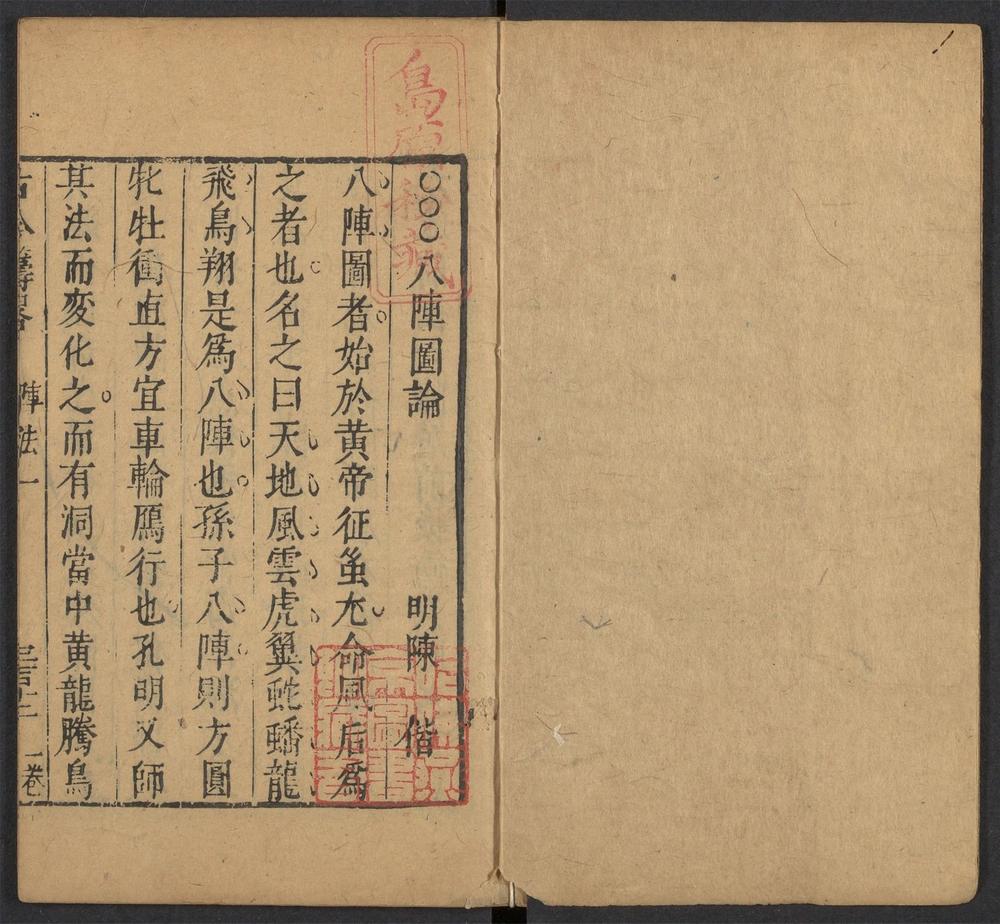 ○○○八陣圖論　明陳　偕
八陣圖者始於黄帝征蚩尤命風后爲
之者也名之曰天地風雲虎翼蛇蟠龍
飛鳥翔是爲八陣也孫子八陣則方圓
牝牡衝直方宜車輪鴈行也孔明又師
其法而変化之而有洞當中黄龍騰鳥
古今籌畧　陣法一　一卷